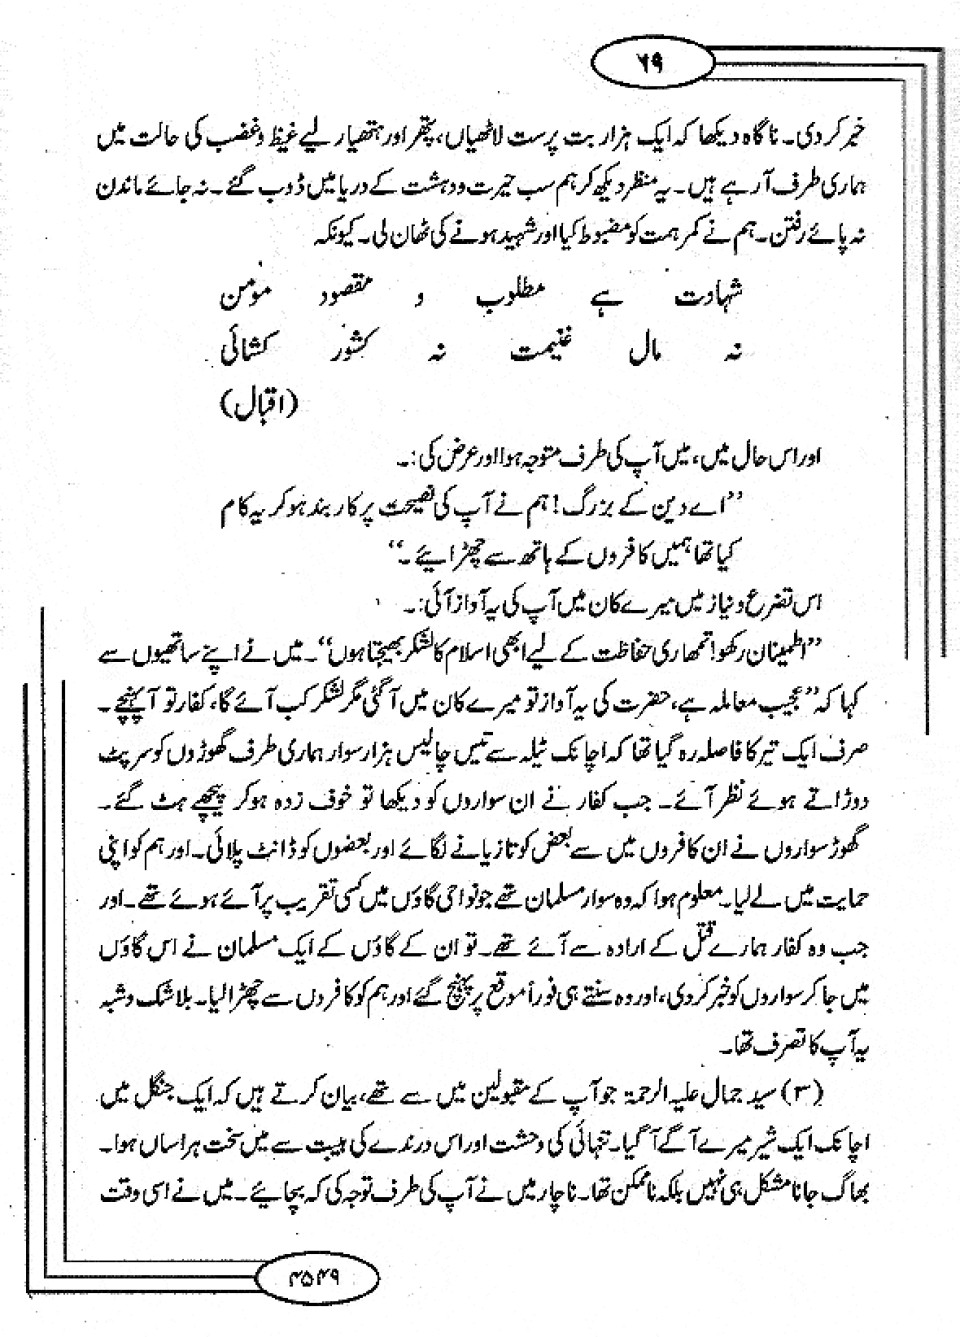 ۶۹
خبر کردی۔ ناگاہ دیکھا کہ ایک ہزار بت پرست لاٹھیاں، پتھر اور ہتھیار لیے غیظ وغضب کی حالت میں
ہماری طرف آرہے ہیں۔ یہ منظر دیکھ کر ہم سب حیرت ودہشت کے دریا میں ڈوب گئے۔ نہ جائے ماندن
نہ پائے رفتن۔ ہم نے کمر ہمت کو مضبوط کیا اور شہید ہونے کی ٹھان لی۔ کیونکہ
شہادت ہے مطلوب و مقصود مومن
نہ مال غنیمت نہ کشور کشائی
(اقبال)
اور اس حال میں، میں آپ کی طرف متوجہ ہوا اور عرض کی:۔
’’اے دین کے بزرگ! ہم نے آپ کی نصیحت پر کاربند ہوکر یہ کام
کیا تھا ہمیں کافروں کے ہاتھ سے چھڑائیے۔‘‘
اس تضرع ونیاز میں میرے کان میں آپ کی یہ آواز آئی:۔
’’اطمینان رکھو! تمھاری حفاظت کے لیے ابھی اسلام کا لشکر بھیجتا ہوں‘‘۔ میں نے اپنے ساتھیوں سے
کہا کہ ’’عجیب معاملہ ہے، حضرت کی یہ آواز تو میرے کان میں آگئی مگر لشکر کب آئے گا، کفار تو آپہنچے۔
صرف ایک تیر کا فاصلہ رہ گیا تھا کہ اچانک ٹیلہ سے تیس چالیس ہزار سوار ہماری طرف گھوڑوں کو سرپٹ
دوڑاتے ہوئے نظر آئے۔ جب کفار نے ان سواروں کو دیکھا تو خوف زدہ ہوکر پیچھے ہٹ گئے۔
گھوڑ سواروں نے ان کافروں میں سے بعض کو تازیانے لگائے اور بعضوں کو ڈانٹ پلائی۔ اور ہم کو اپنی
حمایت میں لے لیا۔ معلوم ہوا کہ وہ سوار مسلمان تھے جو نواحی گاؤں میں کسی تقریب پر آئے ہوئے تھے۔ اور
جب وہ کفار ہمارے قتل کے ارادہ سے آئے تھے۔ تو ان کے گاؤں کے ایک مسلمان نے اس گاؤں
میں جاکر سواروں کو خبر کردی، اور وہ سنتے ہی فوراً موقع پر پہنچ گئے اور ہم کو کافروں سے چھڑا لیا۔ بلاشک وشبہ
یہ آپ کا تصرف تھا۔
(۳) سید جمال علیہ الرحمۃ جو آپ کے مقبولین میں سے تھے، بیان کرتے ہیں کہ ایک جنگل میں
اچانک ایک شیر میرے آگے آگیا۔ تنہائی کی وحشت اور اس درندے کی ہیبت سے میں سخت ہراساں ہوا۔
بھاگ جانا مشکل ہی نہیں بلکہ ناممکن تھا۔ ناچار میں نے آپ کی طرف توجہ کی کہ بچائیے۔ میں نے اسی وقت
۴۵۴۹